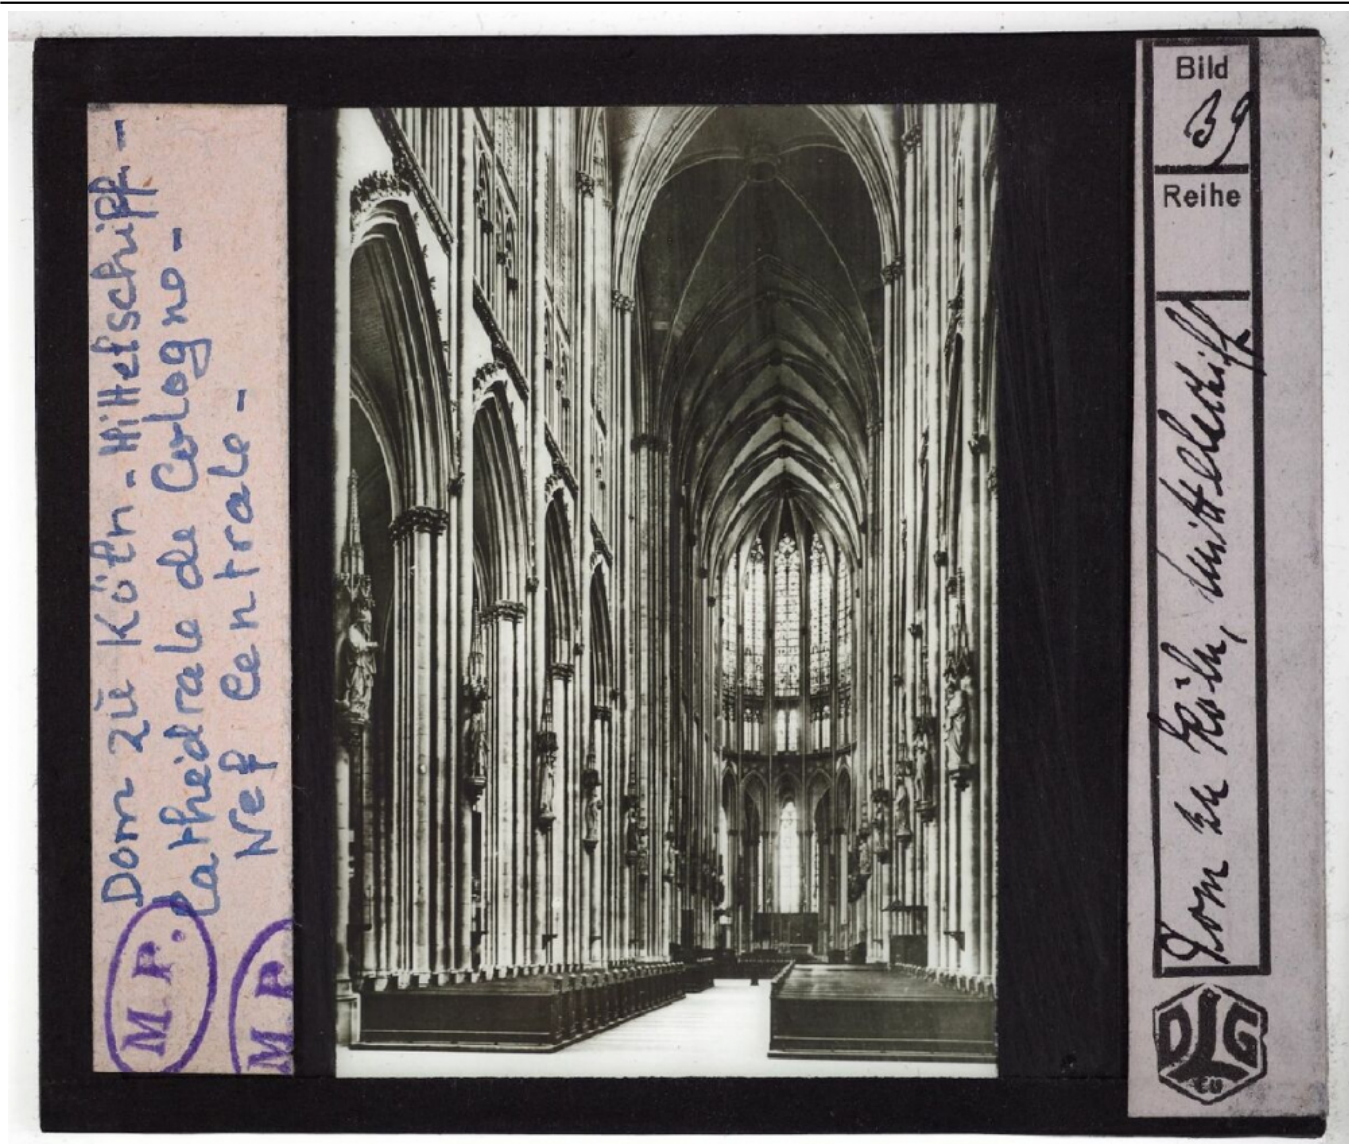 Dom zu Köln - Mittelschiff -
Cathédrale de Cologne -
Nef Centrale -
M.P.
M.P.
Bild
39
Reihe
Dom zu Köln, Mittelschiff
DLG